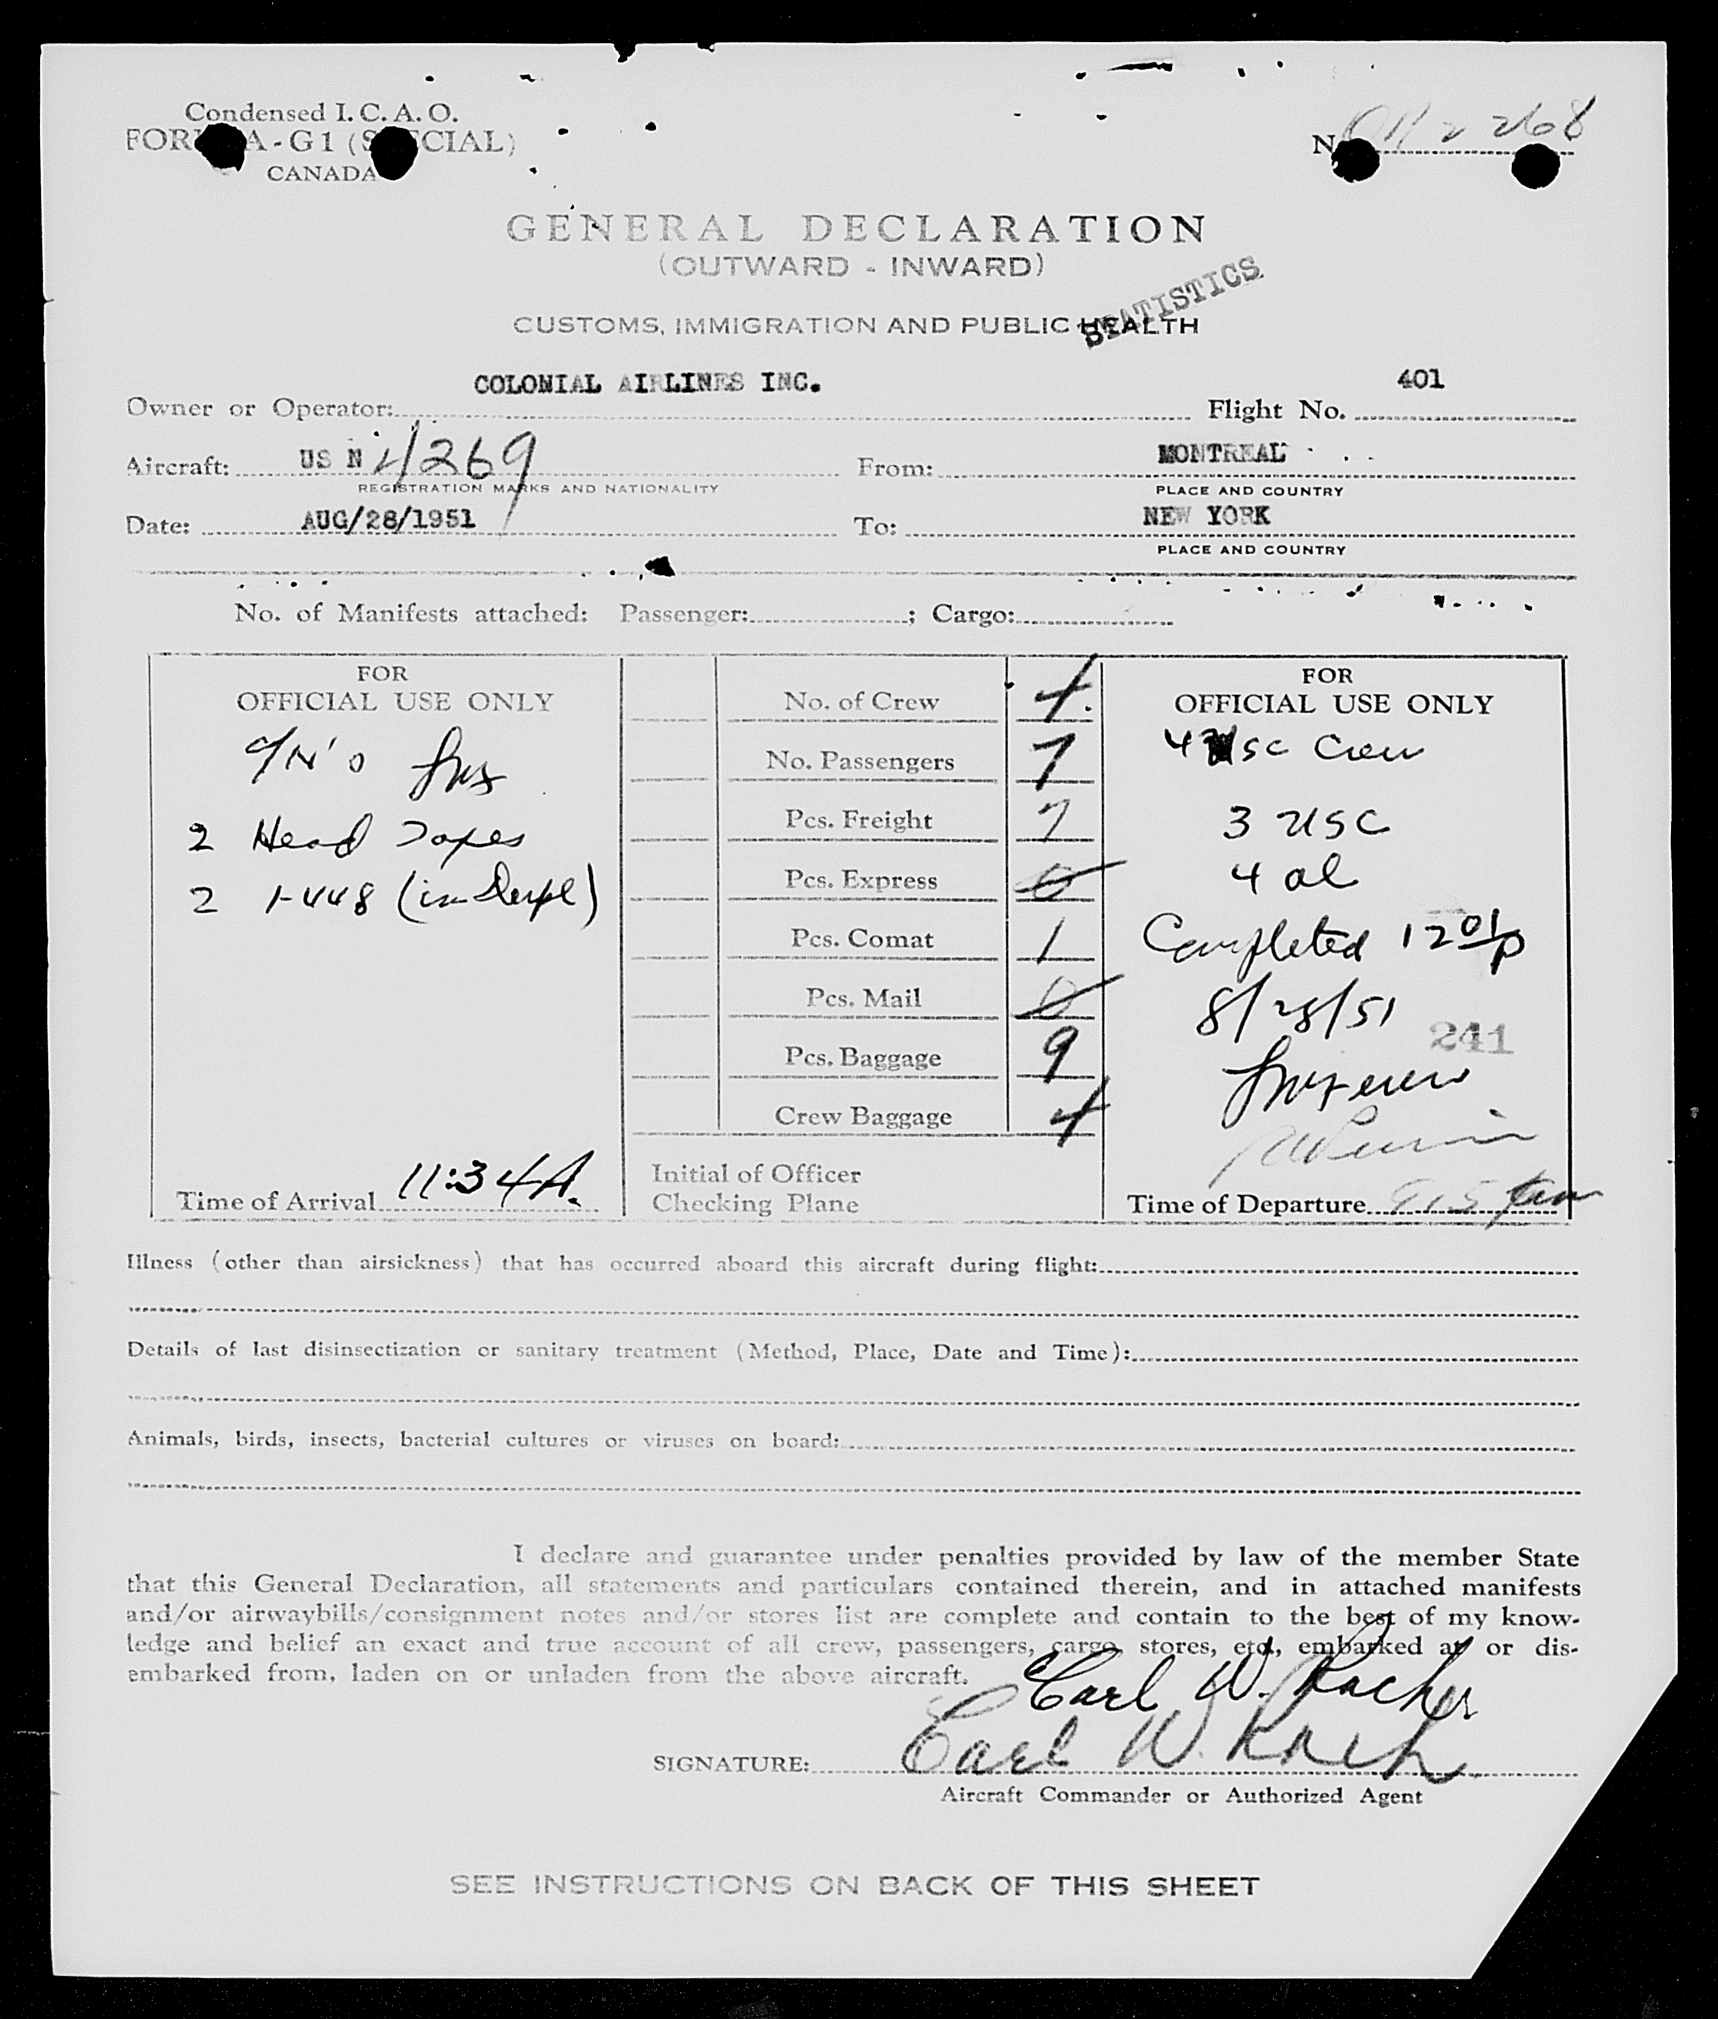 Condensed I. C. A. O.
FORM A-G1 (SPECIAL)
CANADA
2268
GENERAL DECLARATION
(OUTWARD - INWARD)
STATISTICS
CUSTOMS, IMMIGRATION AND PUBLIC HEALTH
Owner or Operator: COLONIAL AIRLINES INC. Flight No. 401
Aircraft: US N 4269 From: MONTREAL
REGISTRATION MARKS AND NATIONALITY PLACE AND COUNTRY
Date: AUG/28/1951 To: NEW YORK
PLACE AND COUNTRY
No. of Manifests attached: Passenger: ; Cargo:
FOR
OFFICIAL USE ONLY
2 Head Taxes
2 1-448 (in
Time of Arrival 11:34A.
No. of Crew 4
No. Passengers 7
Pcs. Freight 7
Pcs. Express 0
Pcs. Comat 1
Pcs. Mail 0
Pcs. Baggage 9
Crew Baggage 4
Initial of Officer
Checking Plane
FOR
OFFICIAL USE ONLY
4 USC Crew
3 USC
4 al
Completed 12 01/p
8/28/51
241
Time of Departure 915
Illness (other than airsickness) that has occurred aboard this aircraft during flight:
Details of last disinsectization or sanitary treatment (Method, Place, Date and Time):
Animals, birds, insects, bacterial cultures or viruses on board:
I declare and guarantee under penalties provided by law of the member State
that this General Declaration, all statements and particulars contained therein, and in attached manifests
and/or airwaybills/consignment notes and/or stores list are complete and contain to the best of my know-
ledge and belief an exact and true account of all crew, passengers, cargo, stores, etc., embarked at or dis-
embarked from, laden on or unladen from the above aircraft.
Carl W.
SIGNATURE: Carl W.
Aircraft Commander or Authorized Agent
SEE INSTRUCTIONS ON BACK OF THIS SHEET